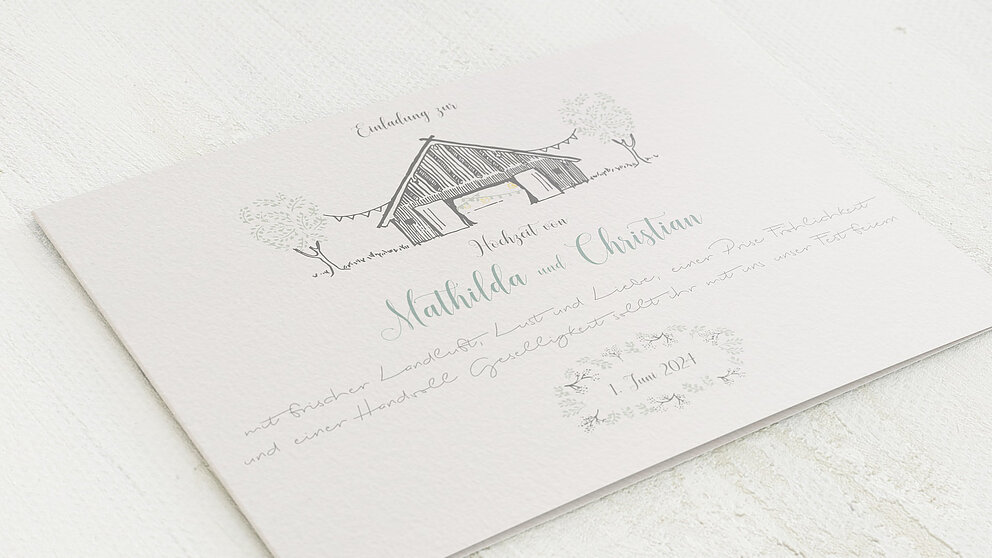 Einladung zur
Hochzeit von
Mathilda und Christian
mit frischer Landluft, Lust und Liebe, einer Prise Fröhlichkeit
und einer Handvoll Geselligkeit sollt ihr mit uns unser Fest feiern
1. Juni 2024